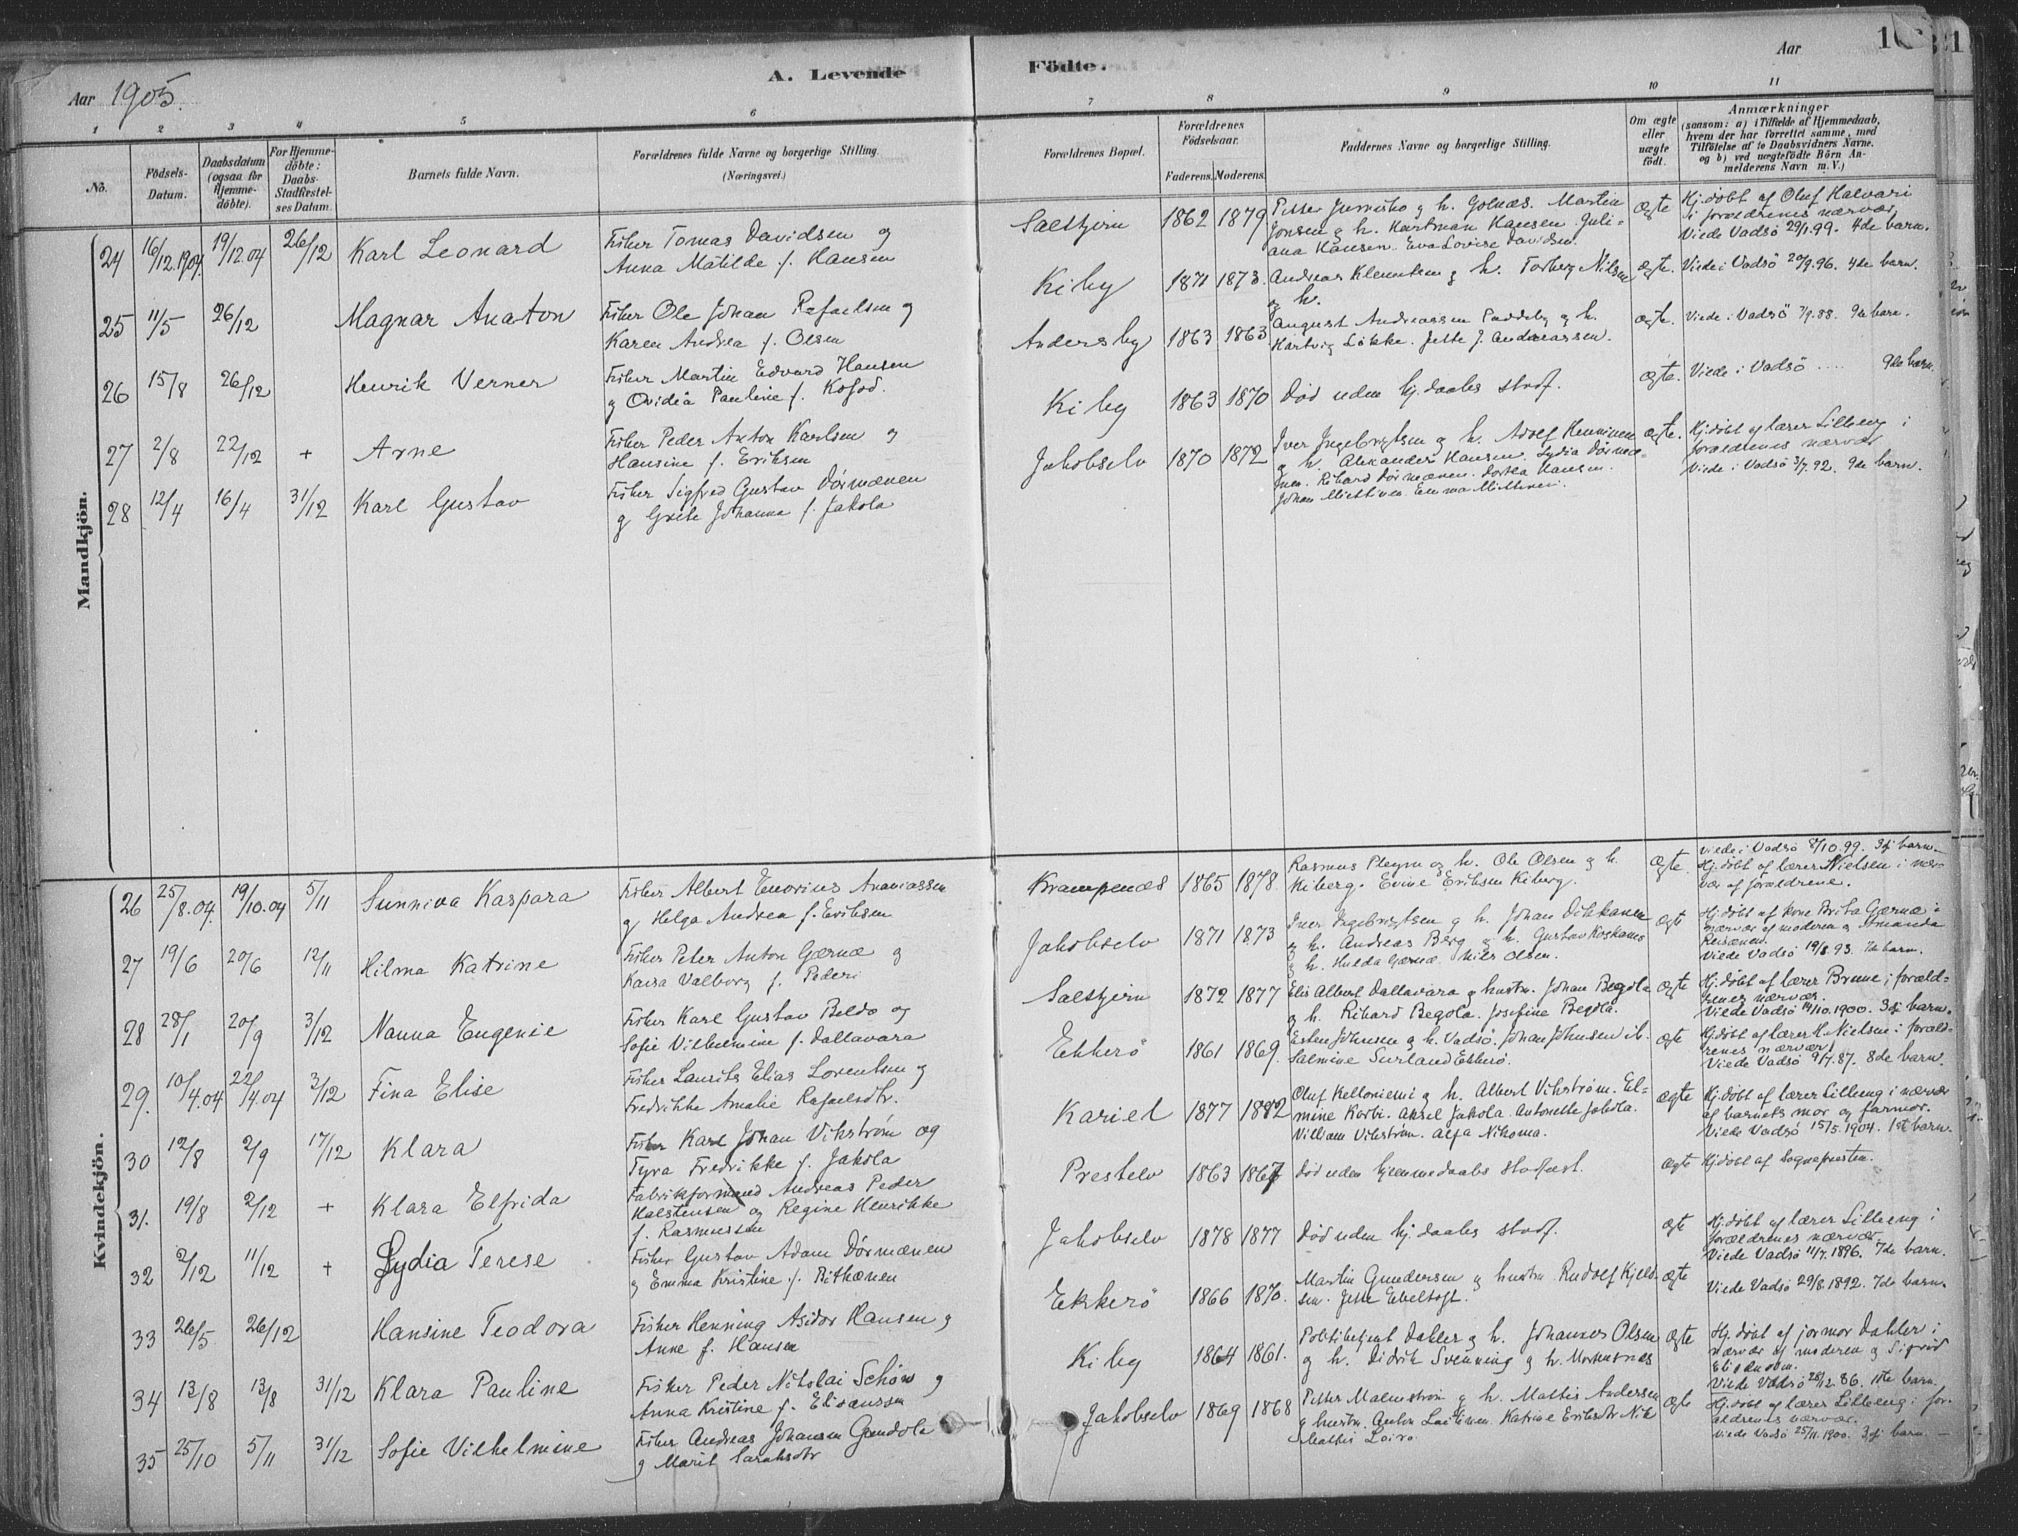 Aar 1905.
A. Levende
Födte.
Aar
1
2
3
4
5
6
7
8
9
10
11
No.
Födsels-
Datum.
Daabsdatum
(ogsaa for
Hjemme-
döbte).
For Hjemme-
döbte:
Daabs-
Stadfæstel-
ses Datum.
Barnets fulde Navn.
Forældrenes fulde Navne og borgerlige Stilling
(Næringsvei.)
Forældrenes Bopæl.
Forældrenes
Födselsaar.
Faderens. Moderens.
Faddernes Navne og borgerlige Stilling.
Om ægte
eller
uægte
födt.
Anmærkninger
(saasom: a) i Tilfælde af Hjemmedaab,
hvem der har forrettet samme, med
Tilföielse af to Daabsvidners Navne.
og b) ved uægtefödte Börn An-
melderens Navn m. V.)
Mandkjön.
24 16/12.1904. 19/12.04 26/12 Karl Leonard
Fisker Tomas Davidsen og
Anna Matilde f. Hansen
Salttjern 1862 1879
Petter og h. Golnæs. Martin
Jonsen og h. Hartman Hansen Juli-
ana Hansen. Eva Lovise Davidsen.
Ægte
Hj.døbt af Oluf Halvari
i forældrenes nærvær
Viede Vadsö 29/1.99. 4de barn.
25 11/5 26/12 Magnar Anaton
Fisker Ole Johan Rafaelsen og
Karen Andrea f. Olsen
Kiby 1871 1873.
Andreas Klemetsen og h. Torberg Nilsen
og h.
Ægte. Viede i Vadsö 20/9.96. 4de barn.
26 15/8 26/12 Henrik Verner
Fisker Martin Edvard Hansen
og Ovidia Pauline f. Kofod.
Andersby 1863 1863
August Andreassen Paddeby og h.
Hartvig Løkke. Jette J. Andreassen.
Ægte. Viede i Vadsö 7/9.88. 9de barn.
27 2/8 22/12 + Arne
Fisker Peder Anton Karlsen og
Hansine f. Eriksen
Kiby 1863 1870
Død uden hj.daabs stadf.
Ægte. Viede i Vadsö .... 9de barn.
28 12/4 16/4 31/12 Karl Gustav
Fisker Sigfred Gustav Dørmænen
og Grete Johanna f. Jakola
Jakobselv 1870 1872
Iver Ingebrigtsen og h. Adolf Henninen
og h. Alexander Hansen. Lydia Dørmæ-
nen. Rikard Dørmænen. Dortea Hansen.
Johan Miettinen Emma Miettinen.
Ægte.
Hj.døbt af lærer Lilleeng i
forældrenes nærvær
Viede i Vadsö 3/7.92. 9de barn.
Kvindekjön.
26 25/8.04. 19/10.04 5/11 Sunniva Kaspara
Fisker Albert Enorius Ananiassen
og Helga Andrea f. Eriksen
Krampenæs 1865 1878
Rasmus Pleym og h. Ole Olsen og h.
Kiberg. Evine Eriksen Kiberg.
Ægte
Viede i Vadsö 8/10.99. 3dj barn.
Hj.døbt af lærer Nielsen i nær-
vær af forældrene.
27 19/6 20/6 12/11 Hilma Katrine
Fisker Peter Anton Gærnæ og
Kaisa Valborg f. Pederi
Jakobselv 1871 1873
Iver Ingebrigtsen og h. Johan Dikkanen
og h. Andreas Berg og h. Gustav Koskamo
og h. Hulda Gærnæ. Nils Olsen.
Ægte
Hj.døbt af kone Brita Gærnæ i
nærvær af moderen og Amanda
Viede Vadsö 19/8.93. barn.
28 28/1 20/9 3/12 Nanna Eugenie
Fisker Karl Gustav Beldo og
Sofie Vilhelmine f. Dallavara
Salttjern 1872 1877
Elis Albert Dallavara og hustr. Johan Begola
og h. Rikard Begola. Josefine Begola.
Ægte
Hj.døbt af lærer Brune i foræld-
renes nærvær.
Viede Vadsö 14/10.1900. 3dj barn.
29. 10/4.04 22/4.04 3/12 Fina Elise
Fisker Laurits Elias Lorentsen og
Fredrikke Amalie Rafaelsdtr.
Ekkerö 1861 1869.
Esten Johnsen og h. Vadsö. Johan Johnsen ib.
Salmine Surland Ekkerö.
Ægte
Hj.døbt af lærer H. Nielsen i foræld-
renes nærvær.
Viede Vadsö 9/7.87. 8de barn.
30 12/8 2/9 17/12 Klara
Fisker Karl Johan Vikstrøm og
Tyra Fredrikke f. Jakola
Kariel 1877 1882
Oluf Keltoniemi og h. Albert Vikstrøm. El-
mine Korbi. Aksel Jakola. Antonette Jakola.
Villiam Vikstrøm. Alfa Nikoma.
Ægte
Hj.døbt af lærer Lilleeng i nærvær
af barnets mor og farmor.
Viede Vadsö 15/5.1904. 1ste barn.
31. 19/8 2/12 + Klara Elfrida
Fabrikformand Andreas Peder
Halstensen og Regine Henrikke
f. Rasmussen
Prestelv 1863 1867
Død uden hjemmedaabs stadfæst.
Ægte Hj.døbt af Sognepresten.
32 2/12 11/12 + Lydia Terese
Fisker Gustav Adam Dørmænen
og Emma Kristine f. Pitkænen
Jakobselv 1878 1877
Død uden hj.daabs stadf.
Ægte
Hj.døbt af lærer Lilleeng i
forældrenes nærvær.
Viede Vadsö 11/7.1896. 7de barn.
33 26/5 26/12 Hansine Teodora
Fisker Henning Asidor Hansen og
Anne f. Hansen
Ekkerö 1866 1870.
Martin Gundersen og hustru Rudolf Kjeld-
sen. Jette Ebeltoft.
Ægte
Viede Vadsö 29/8.1892. 7de barn.
34 13/8 13/8 31/12 Klara Pauline
Fisker Peder Nikolai Schøn og
Anna Kristine f. Eliassen
Kiby 1864 1861.
Politibetjent Dahler og h. Johannes Olsen
og h. Didrik Svenning og h.
Ægte
Hj.døbt af jormor Dahler i
nærvær af moderen og Sigrid
Viede Vadsö 28/12.86. barn.
35 25/10 5/11 31/12 Sofie Vilhelmine
Fisker Andreas Johansen Gundola
og Marit Sarahsdtr
Jakobselv 1869 1868
Petter Malmstrøm og h. Mattis Andersen
og hustru. Anton Laitinen. Katrine Eriksdtr Nik
Mattis Loiro.
Ægte
Hj.døbt af lærer Lilleeng i for-
ældrenes nærvær.
Viede Vadsö 25/11.1900. 3dj barn.